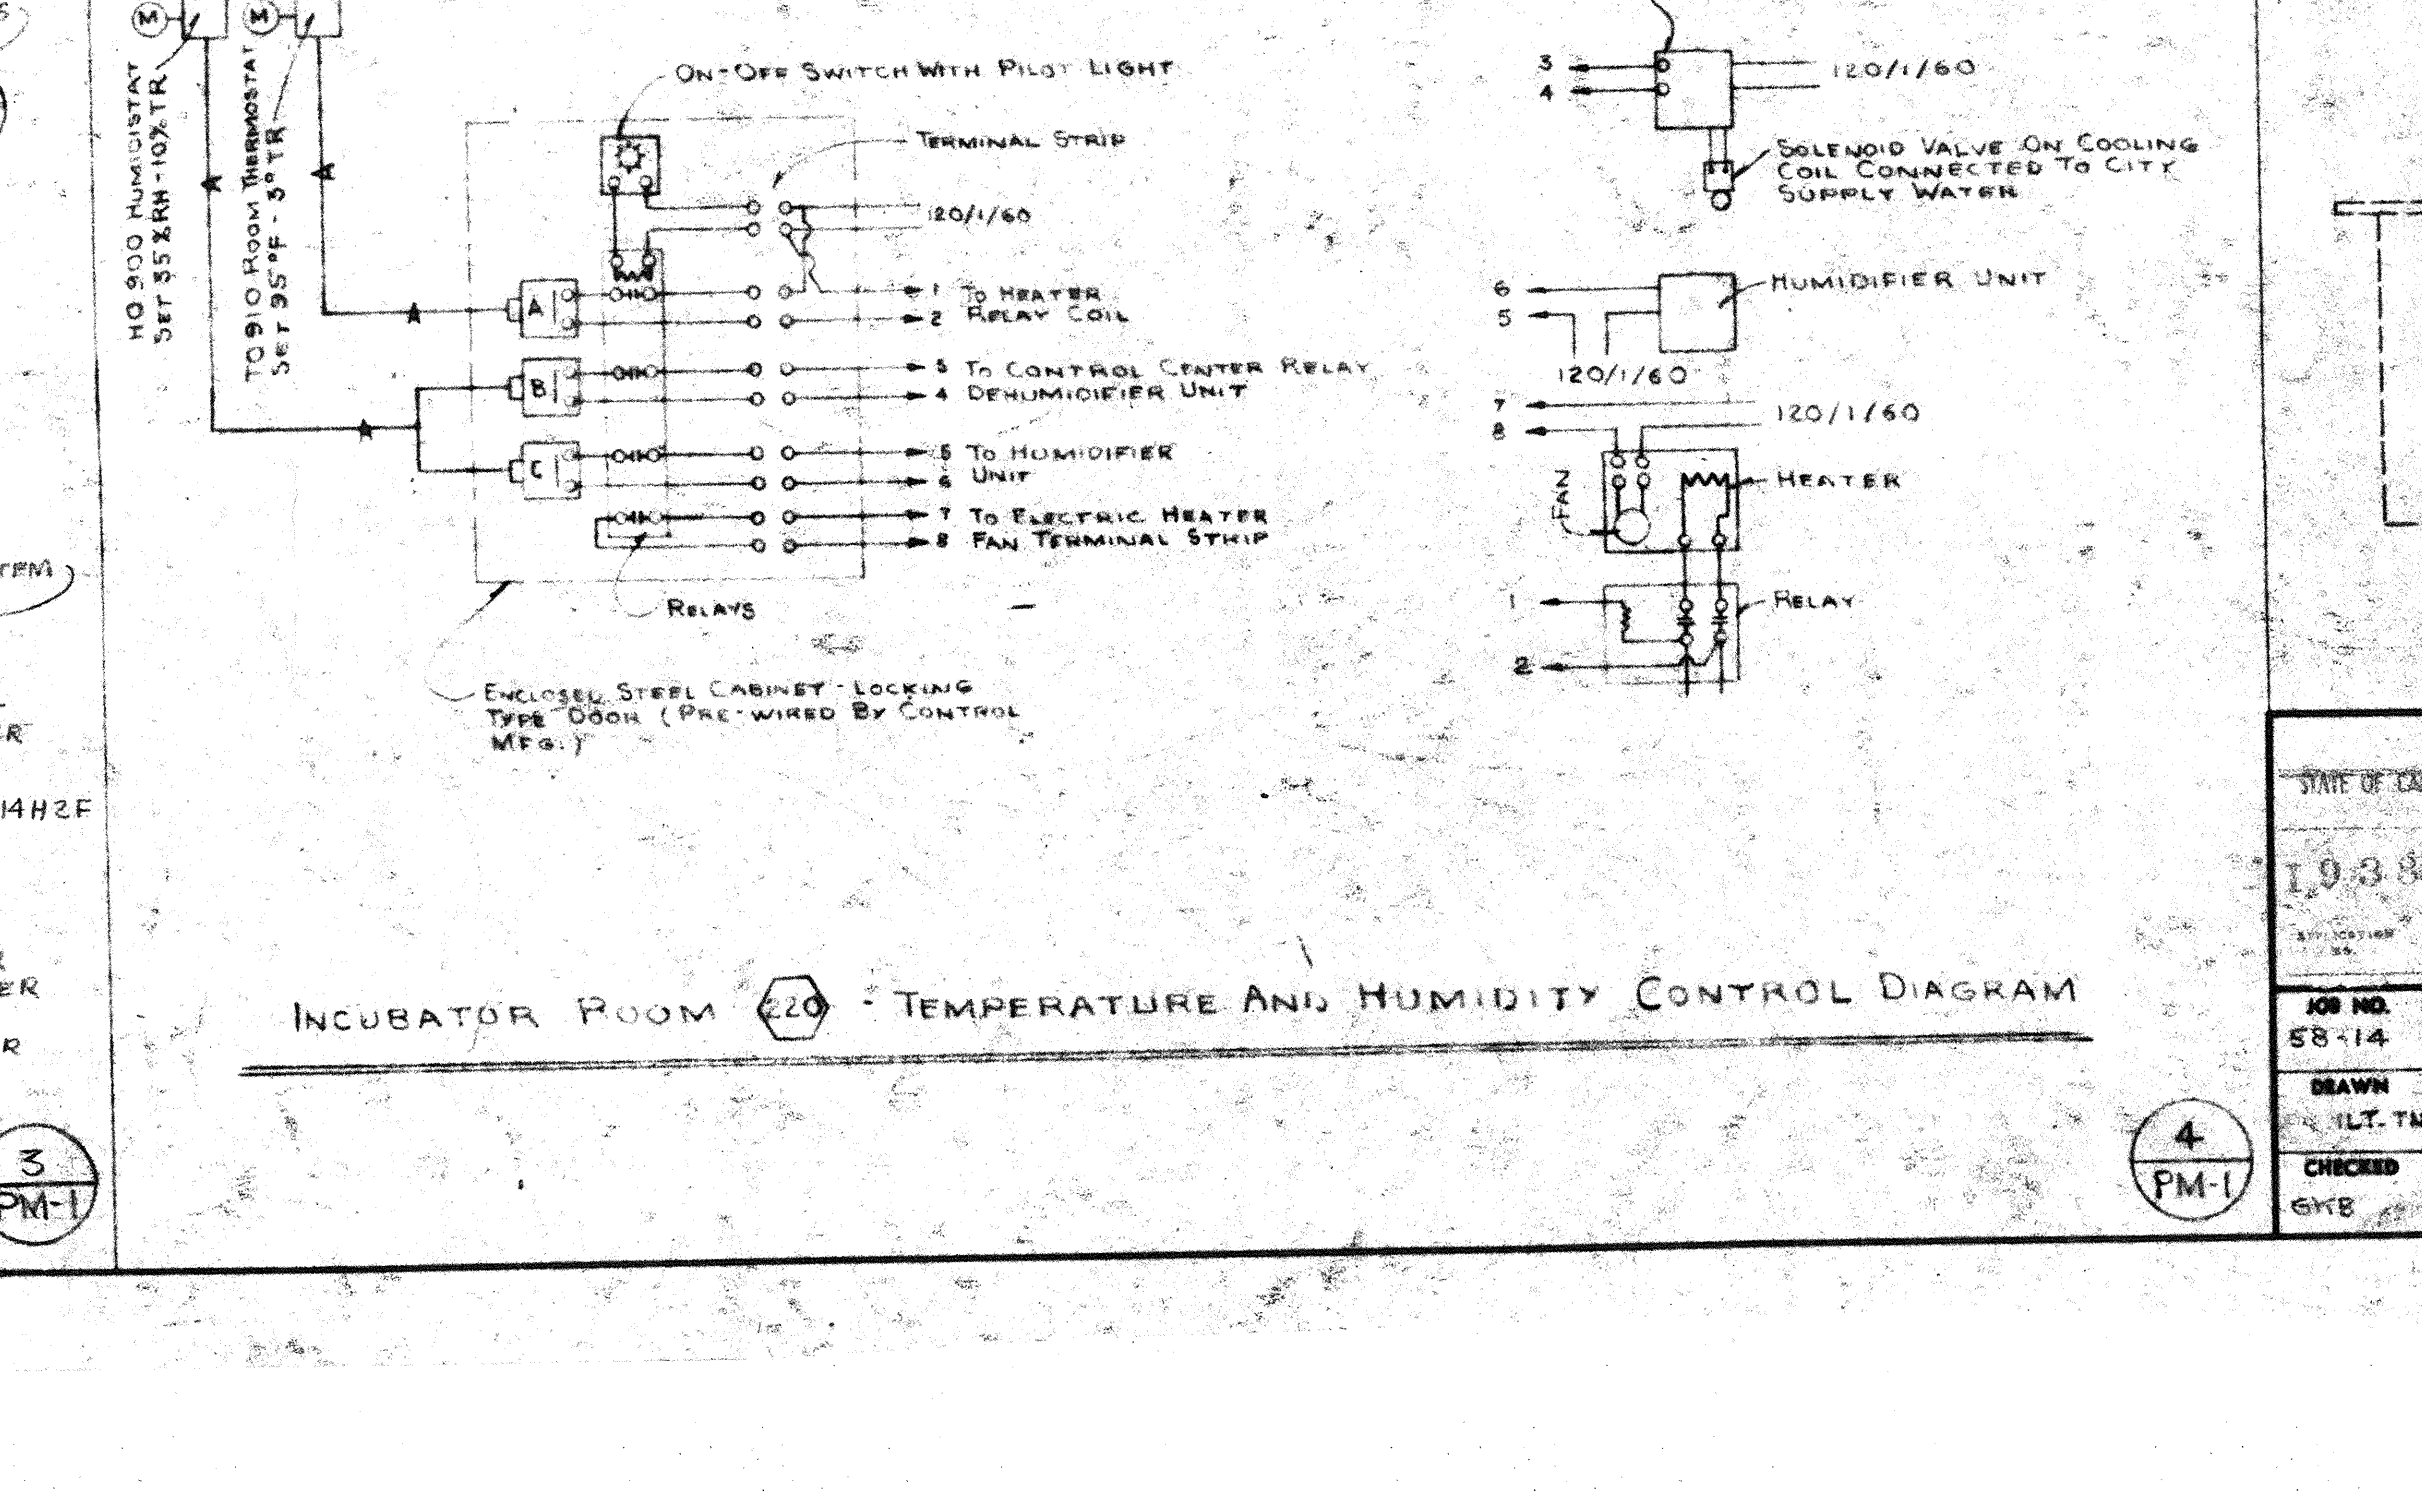 M
M
HO900 HUMIDISTAT
SET 35%RH-10%TR
TO910 ROOM THERMOSTAT
SET 95°F - 3°TR
ON-OFF SWITCH WITH PILOT LIGHT
TERMINAL STRIP
120/1/60
A
A
A
A
A
B
C
1 TO HEATER
2 RELAY COIL
3 TO CONTROL CENTER RELAY
4 DEHUMIDIFIER UNIT
5 TO HUMIDIFIER
6 UNIT
7 TO ELECTRIC HEATER
8 FAN TERMINAL STRIP
RELAYS
ENCLOSED STEEL CABINET - LOCKING
TYPE DOOR (PRE-WIRED BY CONTROL
MFG.)
3
4
120/1/60
SOLENOID VALVE ON COOLING
COIL CONNECTED TO CITY
SUPPLY WATER
6
5
HUMIDIFIER UNIT
120/1/60
7
8
120/1/60
FAN
HEATER
1
2
RELAY
TEM
ER
14H2F
ER
R
INCUBATOR ROOM 220 - TEMPERATURE AND HUMIDITY CONTROL DIAGRAM
3
PM-1
4
PM-1
STATE OF CA
1938
APPLICATION
JOB NO.
58-14
DRAWN
CHECKED
GKB